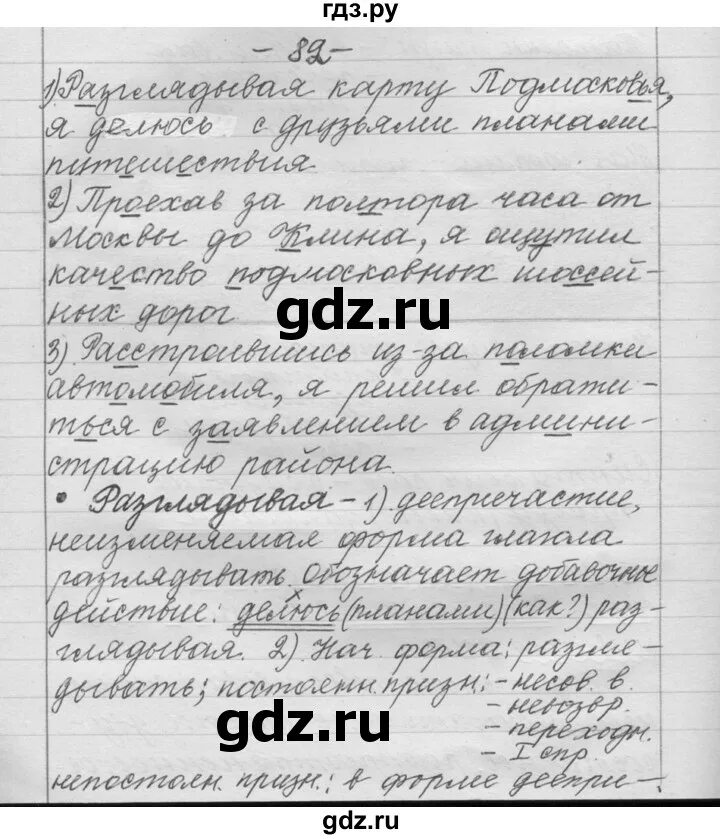 гдз.ру
- 82 -
1) Разглядывая карту Подмосковья,
я делюсь с друзьями планами
путешествия
2) Проехав за полтора часа от
Москвы до Клина, я ощутил
качество подмосковных шоссей-
ных дорог.
gdz.ru
3) Расстроившись из-за поломки
автомобиля, я решил обрати-
ться с заявлением в админи-
страцию района.
• Разглядывая - 1) деепричастие,
неизменяемая форма глагола
разглядывать. Обозначает добавочные
действие: делюсь (планами) (как?) раз-
глядывая. 2) Нач. форма: разгля-
дывать; постоянн. призн.: - несов. в.
- невозвр.
gdz.ru
- переходн.
- I спр.
непостоян. призн.: в форме деепри-